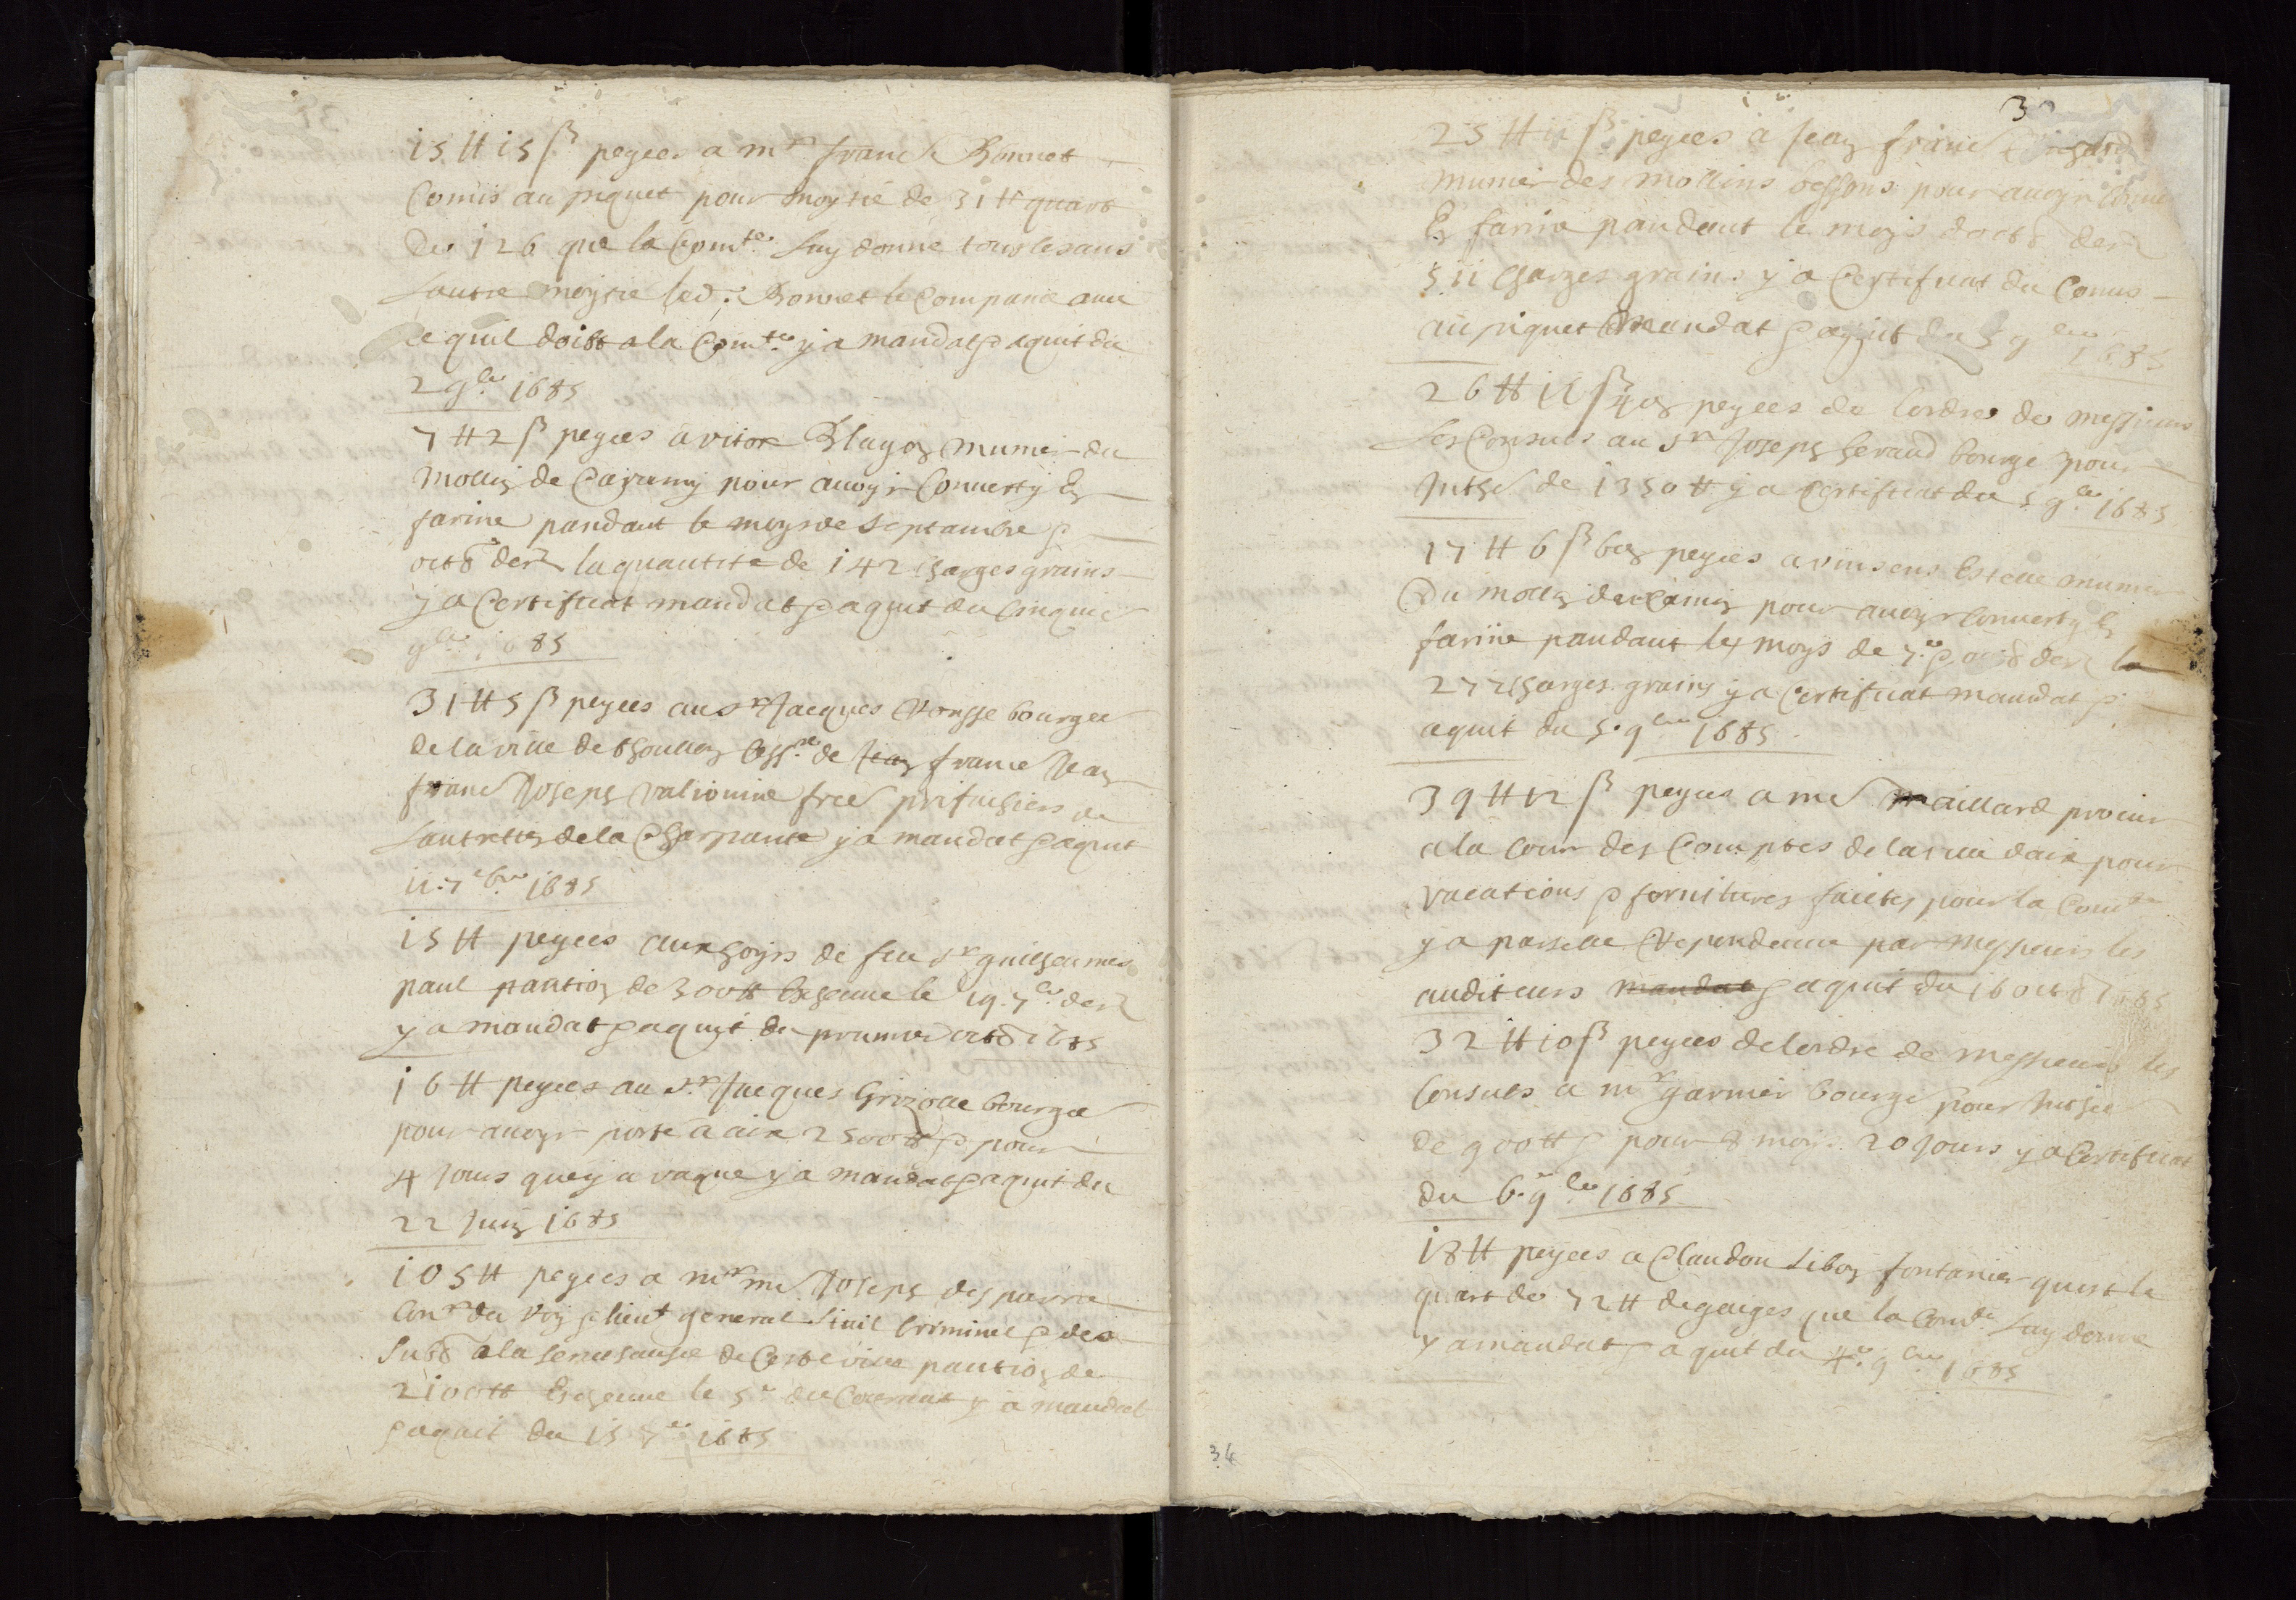 15 ₶ 15 ß peyees a mr franc Bonnet
Comis au piquet pour moytié de 31 ₶ quart
de 126 que la Comte luy donne tous les ans
Lautre moytie led. Bonnet le Compance avec
ce quil doibt a la Comte y a mandat & aquit du
2 9bre 1685
7 ₶ 2 ß peyees a vitor Blayon munier du
Mollin de Caramy pour avoyr Converty En
farine pandant le moys de Septambre &
octb der la quantite de 142 charges grains
y a Certificat mandat & aquit du Cinquie
9bre 1685
31 ₶ 5 ß peyees au sr Jacques bourgee
de la ville de thoullon Cessre de Jean france Jean
franc Joseph valionine free prifachiers de
Lantretien de la Charpante y a mandat & aquit
11. 7bre 1685
15 ₶ peyees aux hoyrs de feu sr guilheaumes
paul pantion de 300 ₶ Escheue le 19. 7bre der
y a mandat & aquit du premie octb 1685
16 ₶ peyees au sr Jacques Grizolle bourgee
pour avoyr porte a aix 2500 ₶ & pour
4 Jours quey a vaque y a mandat & aquit du
22 Juin 1685
105 ₶ peyees a mr me Joseph desparra
Conr du Roy & lieut general Sivil Criminel & des
Subb a la Senechausee de Ceste ville pantion de
2100 ₶ Escheue le 5e du Courant y a mandat
& aquit du 15 7bre 1685
30
25 ₶ 11 ß peyees a Jean franc
munier des mollins bessons pour avoyr Conver
En farine pandant le moys doctb der
511 Charges grains y a Certificat du Comis
au piquet mandat & aquit du 5 9bre 1685
26 ₶ 11 ß 4 d peyees de lordre de messieurs
Les Consuls au sr Joseph Geraud bourge pour
Inthe de 1350 ₶ y a Certificat du 5 9bre 1685
17 ₶ 6 ß 6 d peyees a vinsens Estelle munier
Du mollin de pour avoyr Converty En
farine pandant les moys de 7bre & octb der la
277 Charges grains y a Certificat mandat &
aquit du 5. 9bre 1685
39 ₶ 12 ß peyees a me maillard procur
a la Cour des Comptes de la ville daix pour
vacations & fornitures faictes pour la Comte
y a parselle Despendeance par messieurs les
auditeurs mandat & aquit du 16 octb 1685
32 ₶ 10 ß peyees de lordre de messieurs les
Consuls a mr garnier bourge pour Inthe
de 900 ₶ & pour 8 moys 20 Jours y a Certificat
du 6. 9bre 1685
18 ₶ peyees a Claudon Libon fontanier quest le
quart de 72 ₶ de gaiges que la Comte Luy donne
y a mandat & aquit du 4e 9bre 1685
34